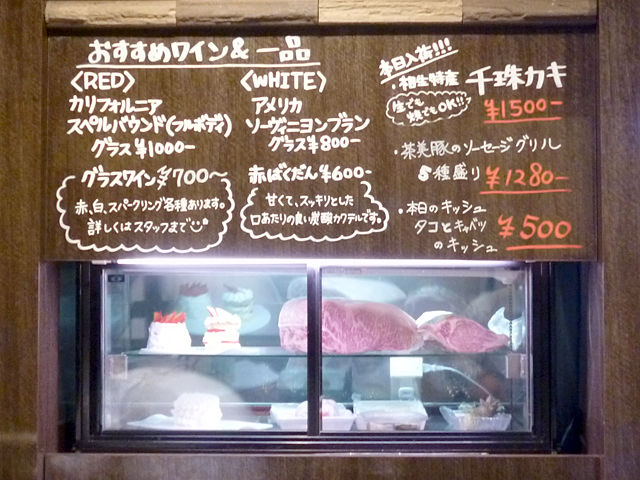 おすすめワイン& 一品
〈RED〉
カリフォルニア
スペルバウンド(フルボディ)
グラス ¥1000-
グラスワイン ¥700〜
赤、白、スパークリング各種あります。
詳しくはスタッフまで
〈WHITE〉
アメリカ
ソーヴィニヨンブラン
グラス¥800-
赤ばくだん ¥600-
甘くて、スッキリとした
口あたりの良い炭酸カクテルです。
本日入荷!!!
・相生特産 千珠カキ
生でも
焼でもOK!!
¥1500-
・茶美豚のソーセージグリル
5種盛り ¥1280-
・本日のキッシュ
タコとキャベツ
のキッシュ
¥500